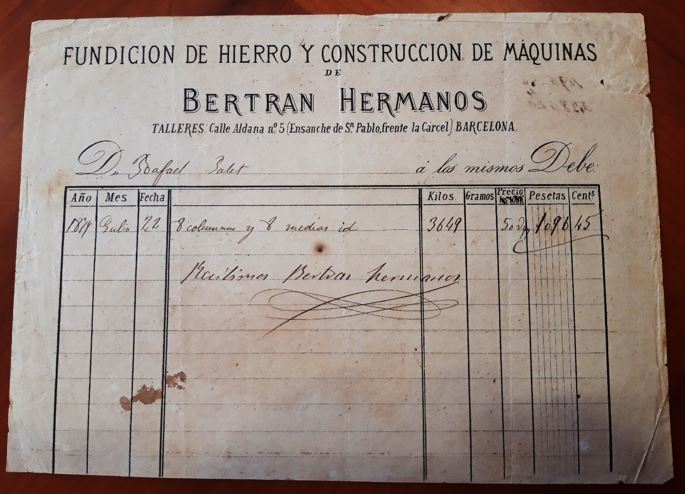 FUNDICION DE HIERRO Y CONSTRUCCION DE MÁQUINAS
DE
BERTRAN HERMANOS
TALLERES Calle Aldana nº 5 (Ensanche de Sn Pablo, frente la Carcel) BARCELONA.
Dn Rafael Palet á los mismos Debe:
Año Mes Fecha Kilos Gramos Precio Pesetas Cents
1879 Julio 22 8 columnas y 8 medias id 3649 1096 45
Recibimos Bertran hermanos